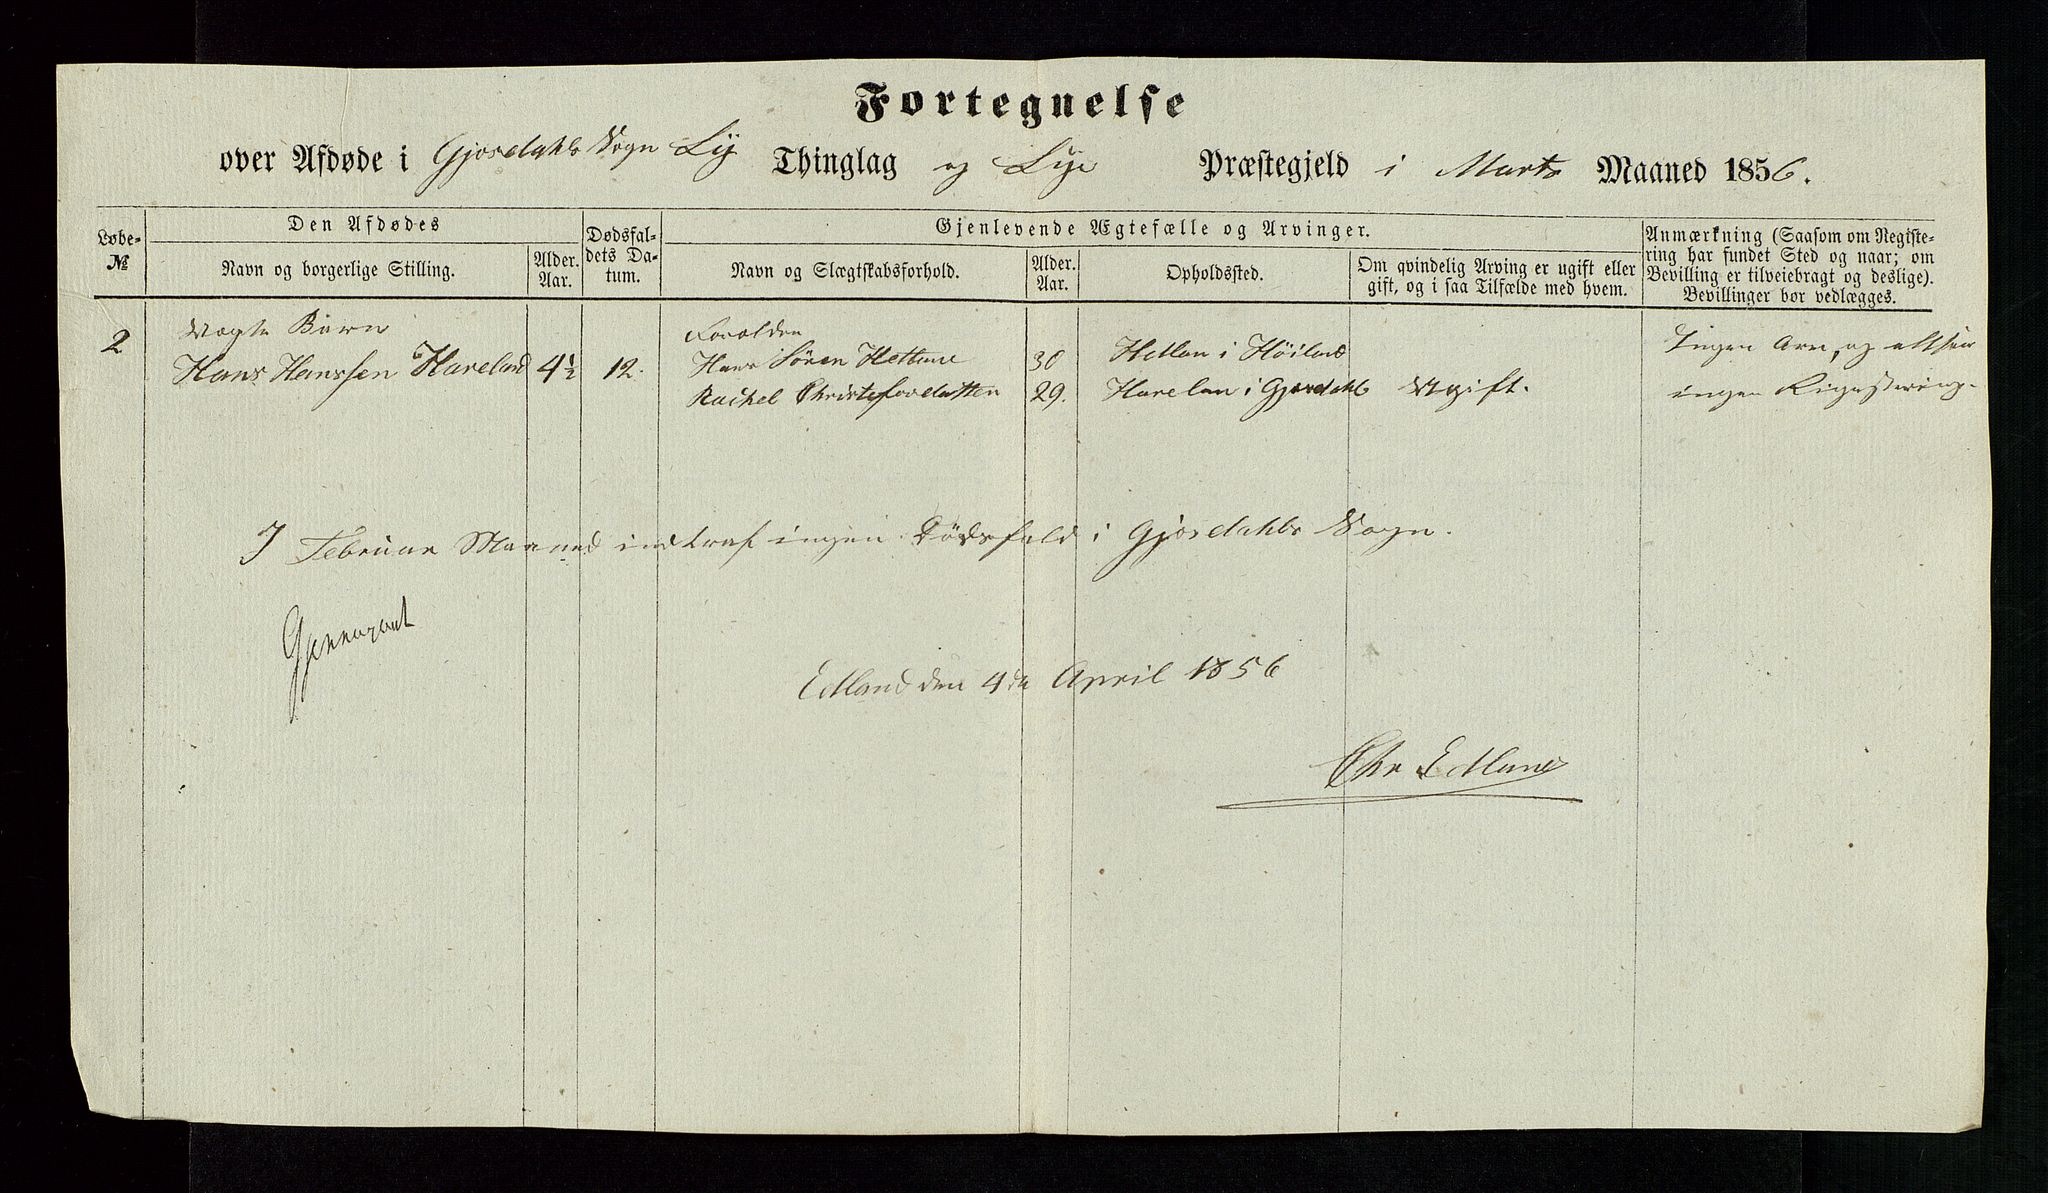 Fortegnelse
over Afdøde i Gjæsdahls Sogn Ly Thinglag og Lye Præstegjeld i Marts Maaned 1856.
Løbe-
№
Den Afdødes
Navn og borgerlige Stilling.
Alder.
Aar.
Dødsfal-
dets Da-
tum.
Gjenlevende Ægtefælle og Arvinger.
Navn og Slægtskabsforhold.
Alder.
Aar.
Opholdssted.
Om qvindelig Arving er ugift eller
gift, og i saa Tilfælde med hvem.
Anmærkning (Saasom om Registe-
ring har fundet Sted og naar; om
Bevilling er tilveiebragt og deslige).
Bevillinger bør vedlægges.
2
Uægte Barn
Hans Hanssen Haveland 4½ 12.
Forældre
Hans Sören Hetland 30 Hetlan i Höiland
Rachel Christofersdatter 29. Havelan i Gjæsdahl Ugift.
Ingen Arv, og altsaa
ingen Registrering.
I Februar Maaned indtraf ingen Dödsfald i Gjæsdahls Sogn.
Gjennemgaaet
Edland den 4de April 1856
Chr Edland